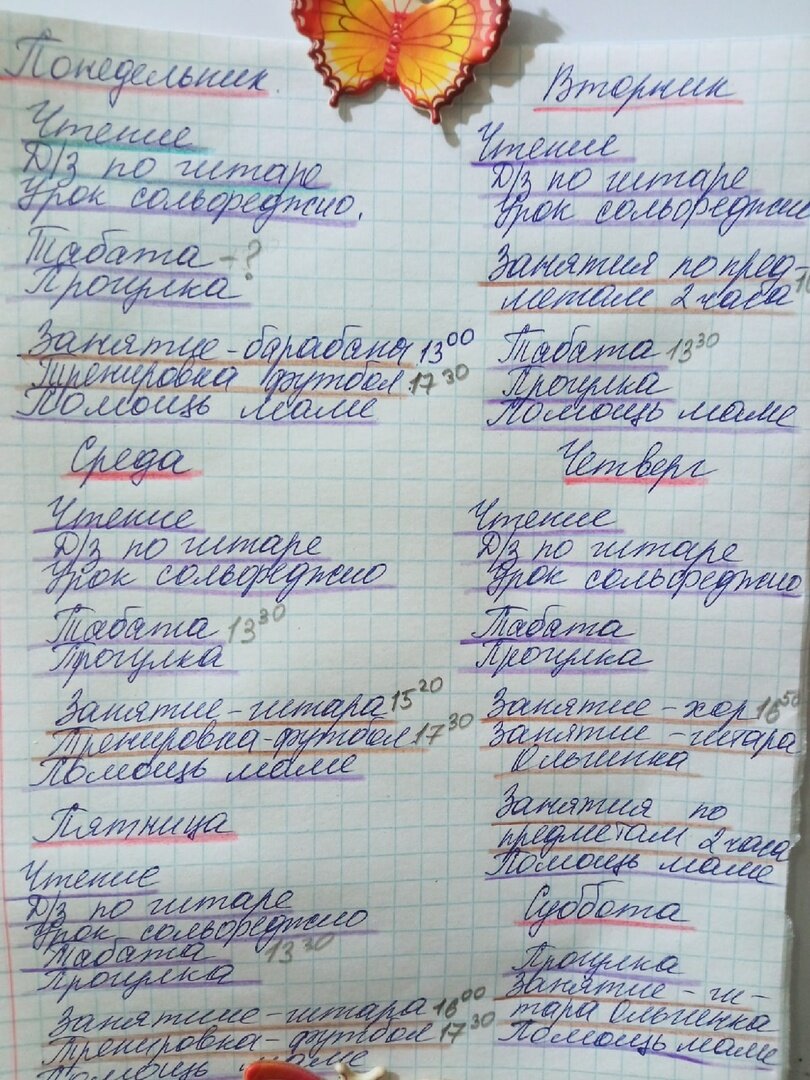 Понедельник
Чтение
Д/з по гитаре
Урок сольфеджио.
Табата - ?
Прогулка
Занятие - барабаны 13 00
Тренировка футбол 17 30
Помощь маме
Вторник
Чтение
Д/з по гитаре
Урок сольфеджио
Занятия по пред-
метам 2 часа
Табата 13 30
Прогулка
Помощь маме
Среда
Чтение
Д/з по гитаре
Урок сольфеджио
Табата 13 30
Прогулка
Занятие - гитара 15 20
Тренировка - футбол 17 30
Помощь маме
Четверг
Чтение
Д/з по гитаре
Урок сольфеджио
Табата
Прогулка
Занятие - хор 16 50
Занятие - гитара
Ольгинка
Занятия по
предметам 2 часа
Помощь маме
Пятница
Чтение
Д/з по гитаре
Урок сольфеджио
Табата 13 30
Прогулка
Занятие - гитара 16 00
Тренировка - футбол 17 30
Помощь маме
Суббота
Прогулка
Занятие - ги-
тара Ольгинка
Помощь маме